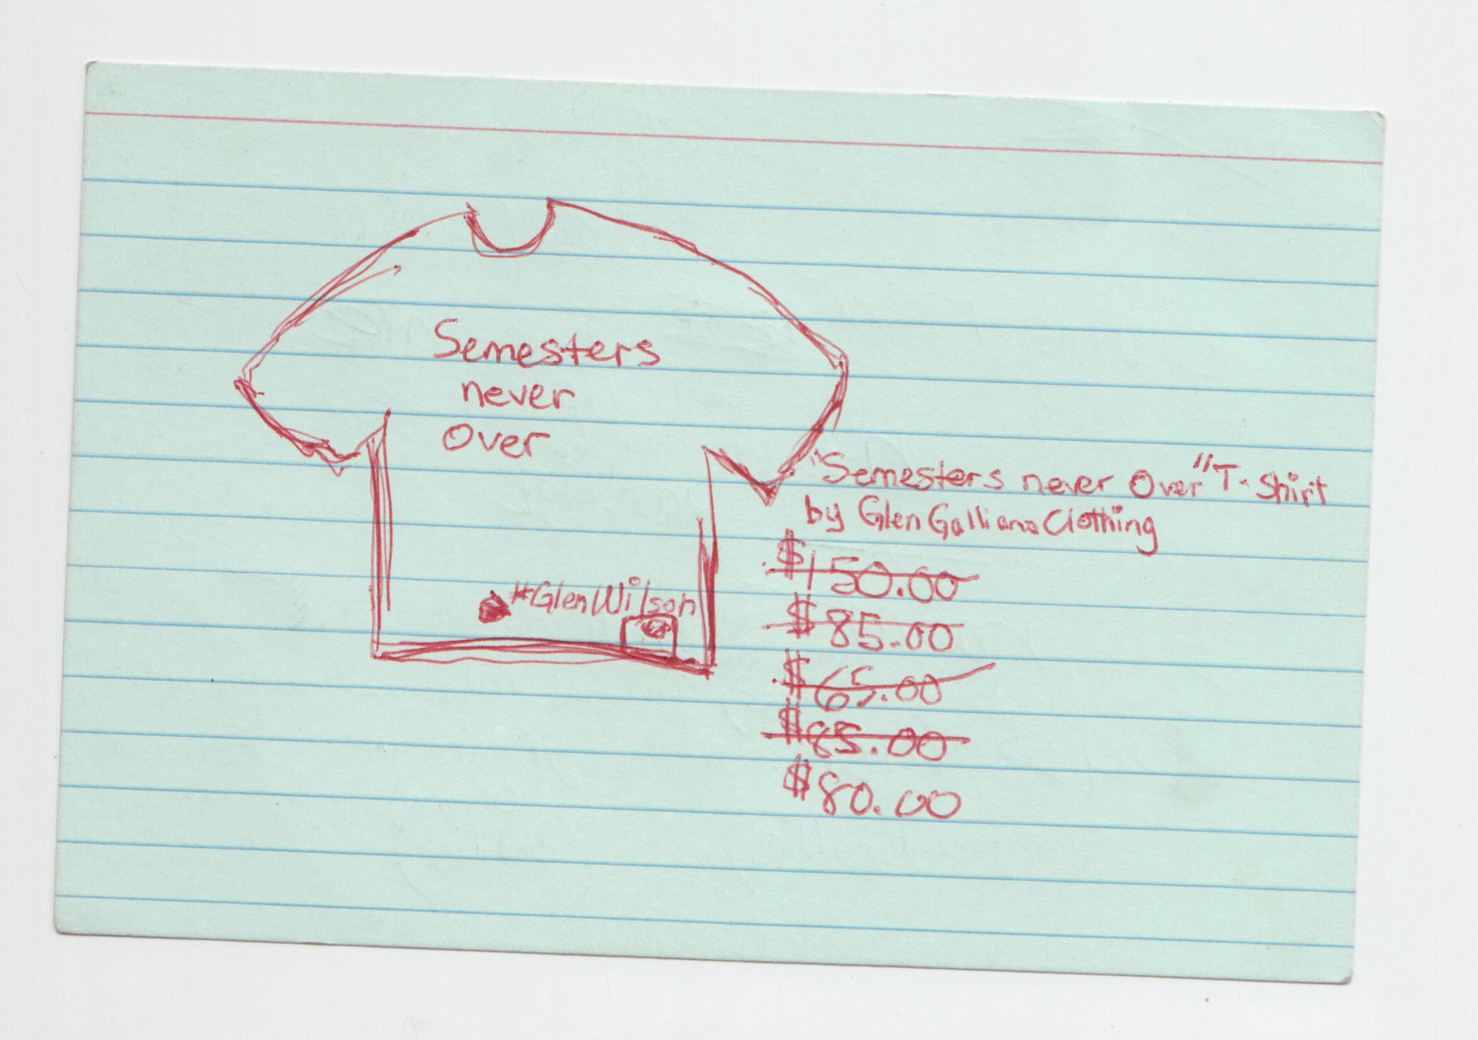 Semesters
never
Over
#GlenWilson
"Semesters never Over" T-Shirt
by Glen Galliana Clothing
$150.00
$85.00
$65.00
$85.00
$80.00